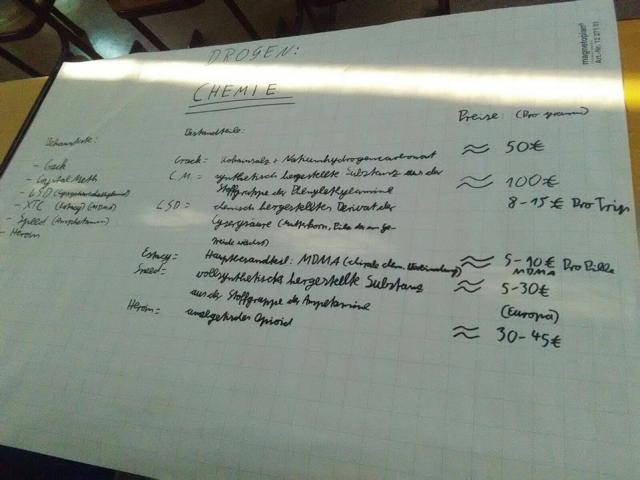 DROGEN:
CHEMIE
magnetoplan
Art.-Nr. 12 271 01
Bekannteste:
- Crack
- Crystal Meth
- LSD
- XTC (Extasy) (MDMA)
- Speed (Amphetamin)
- Heroin
Bestandteile:
Crack = Kokainsalz + Natriumhydrogencarbonat
C.M. = synthetisch hergestellte Substanz aus der
Stoffgruppe der Phenylethylamine
LSD = chemisch hergestelltes Derivat der
Lysergsäure (Mutterkorn, der am Ge-
treide wächst)
Extacy = Hauptbestandteil: MDMA (chirale chem. Verbindung)
Speed = vollsynthetisch hergestellte Substanz
aus der Stoffgruppe der Ampetamine
Heroin = analgetisches Opioid
Preise: (Pro gramm)
≈ 50€
≈ 100€
8-15€ Pro Trip
≈ 5-10€ Pro Pille
MDMA
≈ 5-30€
(Europa)
≈ 30-45€